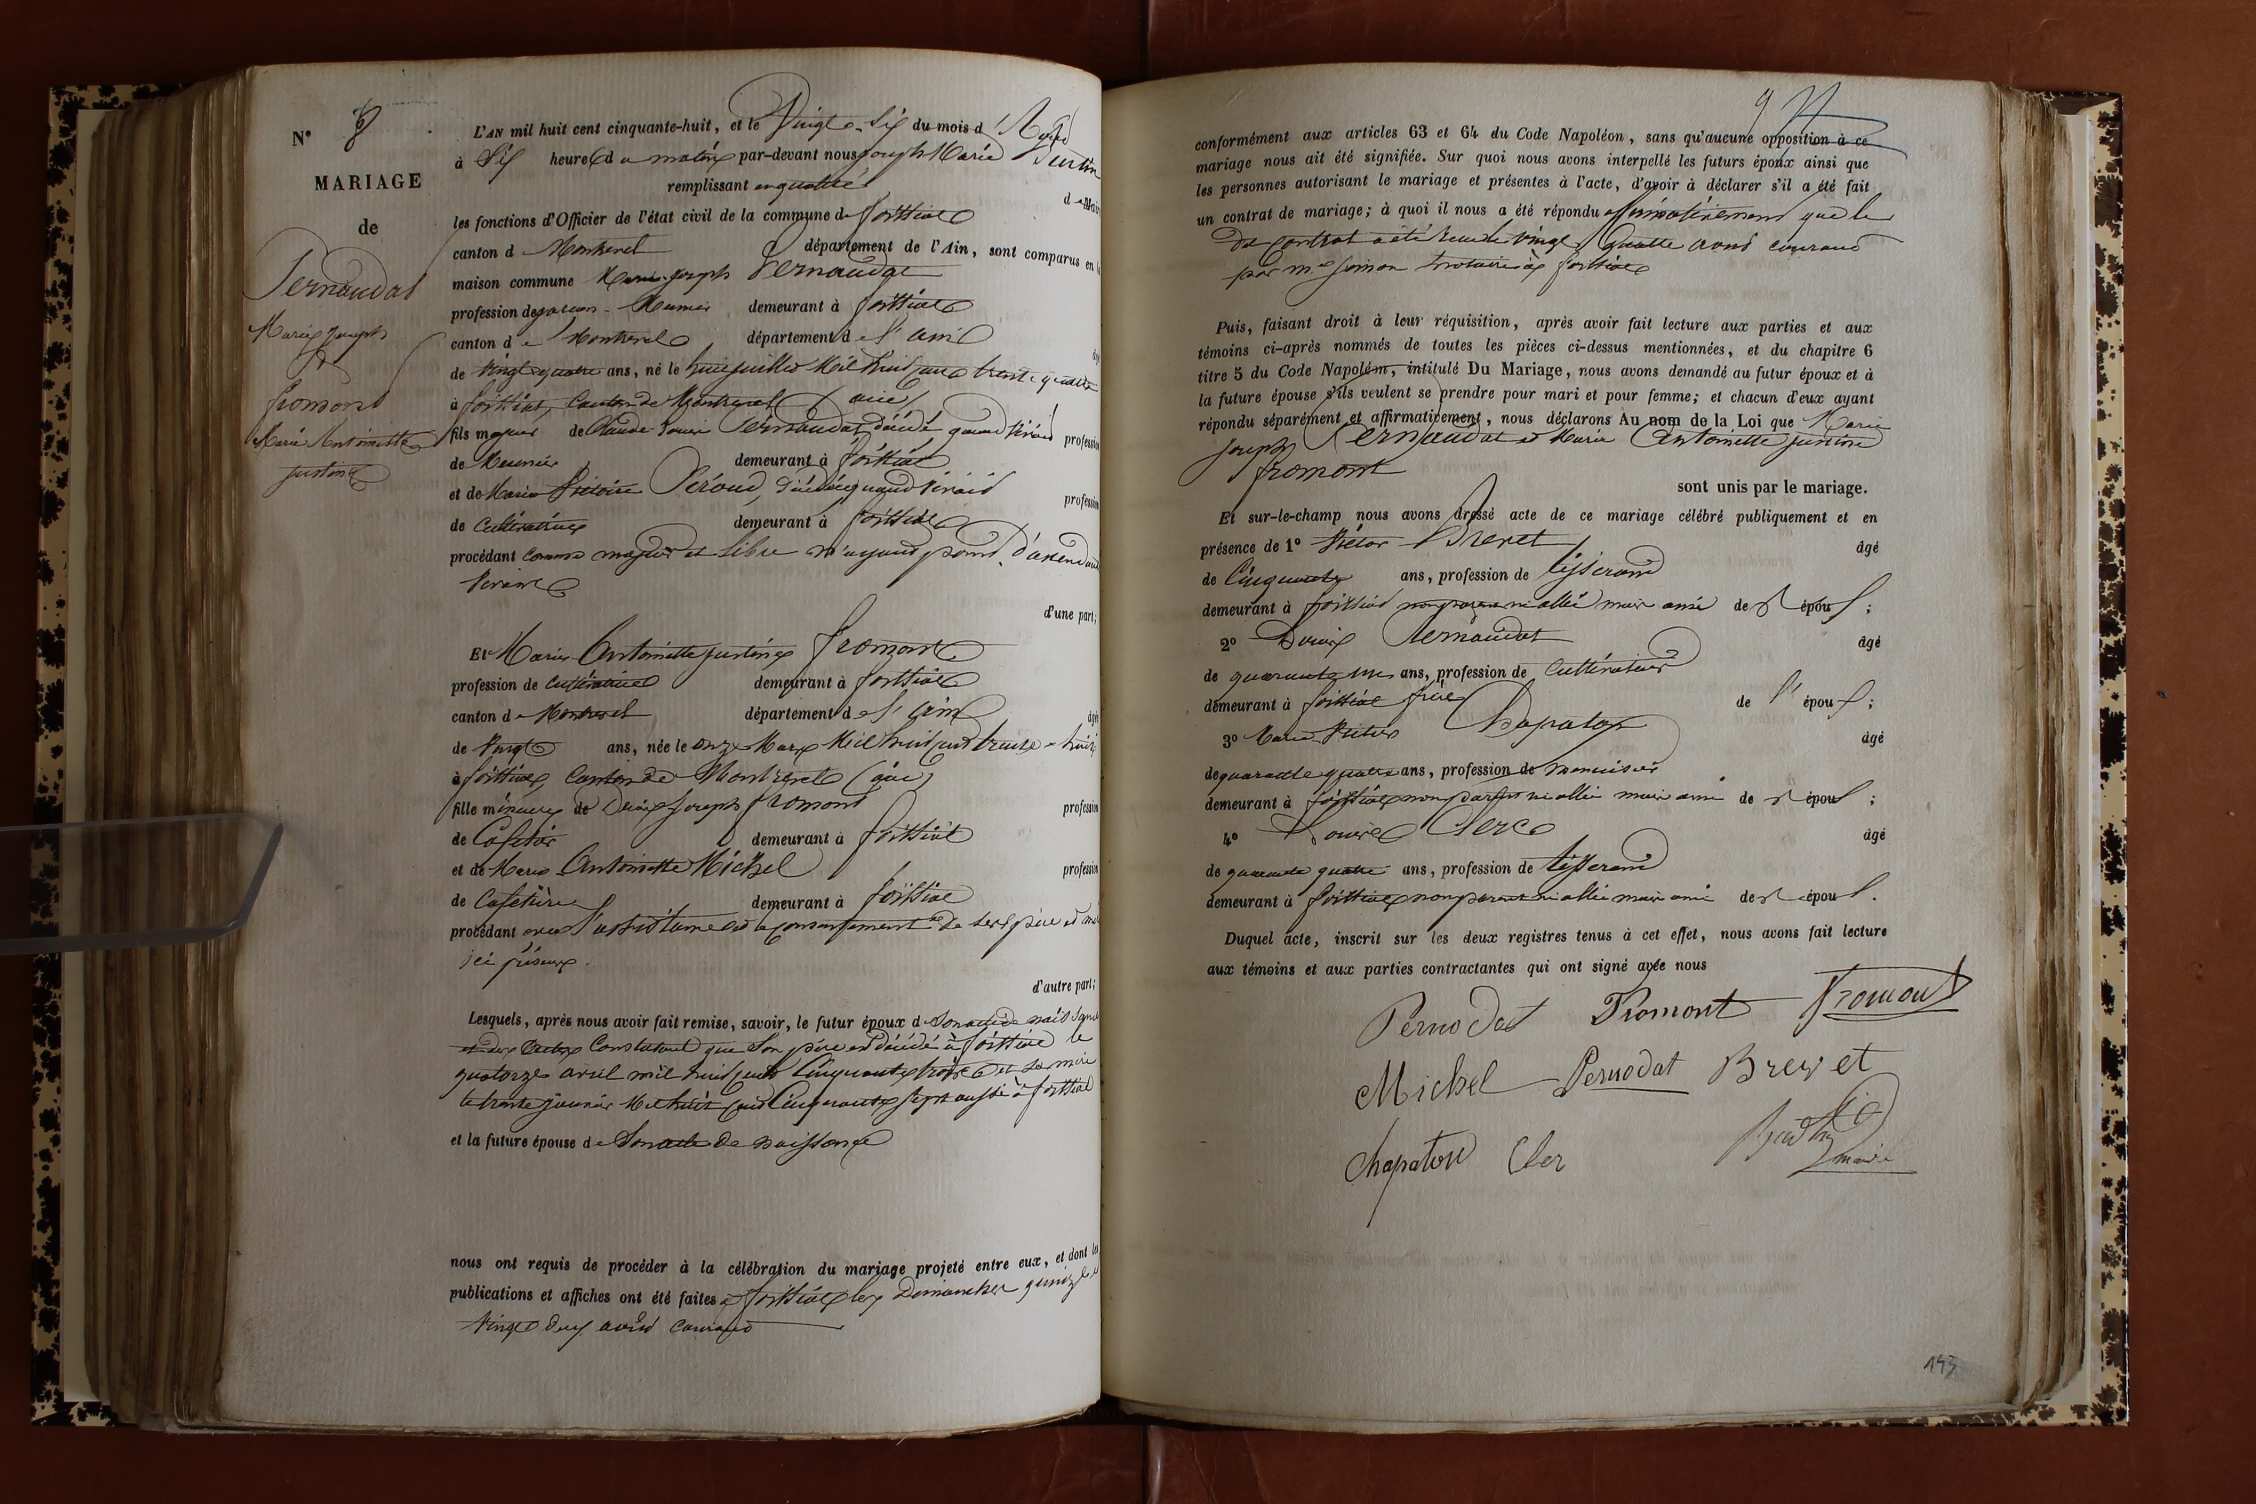 N° 8
MARIAGE
de
Pernaudat
Marie Joseph
&
Fromont
Marie Antoinette
Justine
L'AN mil huit cent cinquante-huit, et le Vingt-Six du mois d'Avril
à Six heures du matin par-devant nous Joseph Marie
remplissant en qualité de Maire
les fonctions d'Officier de l'état civil de la commune de foissiat
canton de Montrevel département de l'Ain, sont comparus en la
maison commune Marie Joseph Pernaudat
profession de garçon Meunier demeurant à foissiat
canton de Montrevel département de l'ain
de vingt quatre ans, né le juillet Mil huit cent trente quatre
à foissiat, Canton de Montrevel (ain)
fils majeur de Claude Louis Pernaudat, décédé quand vivait profession
de Meunier demeurant à foissiat
et de Marie Victoire Péroud, décédée quand vivait profession
de Cultivatrice demeurant à foissiat
procédant comme majeur et libre n'ayant point d'ascendant
vivant
d'une part;
Et Marie Antoinette Justine fromont
profession de Cultivatrice demeurant à foissiat
canton de Montrevel département de l'ain âgée
de vingt ans, née le onze Mars Mil huit cent trente huit
à foissiat, Canton de Montrevel (ain)
fille mineure de Joseph fromont profession
de Cafetier demeurant à foissiat
et de Marie Antoinette Michel profession
de Cafetière demeurant à foissiat
procédant avec l'assistance et le consentement de ses père et mère
ici présents.
d'autre part;
Lesquels, après nous avoir fait remise, savoir, le futur époux de Son acte de
actes Constatant que Son père est décédé à foissiat le
quatorze avril mil huit cent Cinquante et Sa mère
le trente janvier Mil huit cent Cinquante Sept aussi à foissiat
et la future épouse de Son acte de naissance
nous ont requis de procéder à la célébration du mariage projeté entre eux, et dont les
publications et affiches ont été faites à foissiat les Dimanches
Vingt avril courant
conformément aux articles 63 et 64 du Code Napoléon, sans qu'aucune opposition à ce
mariage nous ait été signifiée. Sur quoi nous avons interpellé les futurs époux ainsi que
les personnes autorisant le mariage et présentes à l'acte, d'avoir à déclarer s'il a été fait
un contrat de mariage; à quoi il nous a été répondu affirmativement que le
dit Contrat a été vingt quatre avril courant
par me notaire à foissiat
Puis, faisant droit à leur réquisition, après avoir fait lecture aux parties et aux
témoins ci-après nommés de toutes les pièces ci-dessus mentionnées, et du chapitre 6
titre 5 du Code Napoléon, intitulé Du Mariage, nous avons demandé au futur époux et à
la future épouse s'ils veulent se prendre pour mari et pour femme; et chacun d'eux ayant
répondu séparément et affirmativement, nous déclarons Au nom de la Loi que Marie
Joseph Pernaudat et Marie Antoinette Justine
fromont
sont unis par le mariage.
Et sur-le-champ nous avons dressé acte de ce mariage célébré publiquement et en
présence de 1° Victor Brevet âgé
de Cinquante ans, profession de tisserand
demeurant à foissiat non parent ni allié mais ami des époux;
2° Louis Pernaudat âgé
de quarante un ans, profession de Cultivateur
demeurant à foissiat frère de l'époux;
3° Marie Chapaton âgé
de quarante quatre ans, profession de menuisier
demeurant à foissiat non parent ni allié mais ami des époux;
4° Louis Clerc âgé
de quarante quatre ans, profession de tisserand
demeurant à foissiat non parent ni allié mais ami des époux.
Duquel acte, inscrit sur les deux registres tenus à cet effet, nous avons fait lecture
aux témoins et aux parties contractantes qui ont signé avec nous
Pernodat Fromont Fromont
Michel Pernodat Brevet
Chapaton Cler
maire
143